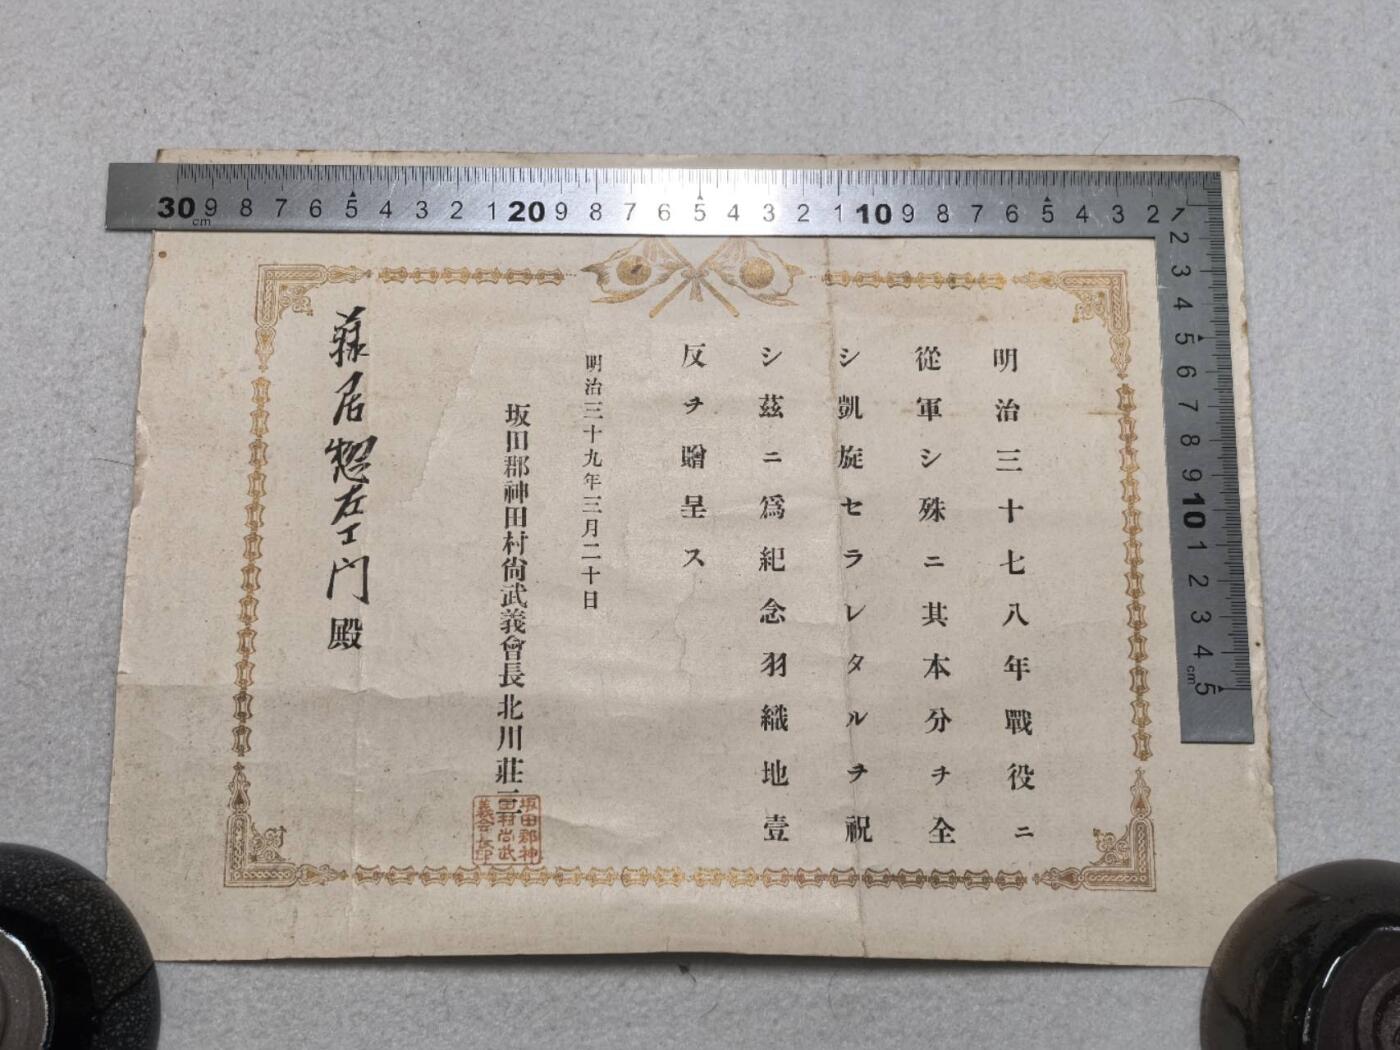 明治三十七八年戰役ニ
從軍シ殊ニ其本分ヲ全
シ凱旋セラレタルヲ祝
シ茲ニ爲紀念羽織地壹
反ヲ贈呈ス
明治三十九年三月二十日
坂田郡神田村尙武義會長北川莊三
坂田郡神
田村尚武
義会長印
居惣左エ门殿
30 9 8 7 6 5 4 3 2 1 20 9 8 7 6 5 4 3 2 1 10 9 8 7 6 5 4 3 2 1
cm
2 3 4 5 6 7 8 9 10 1 2 3 4 5
cm